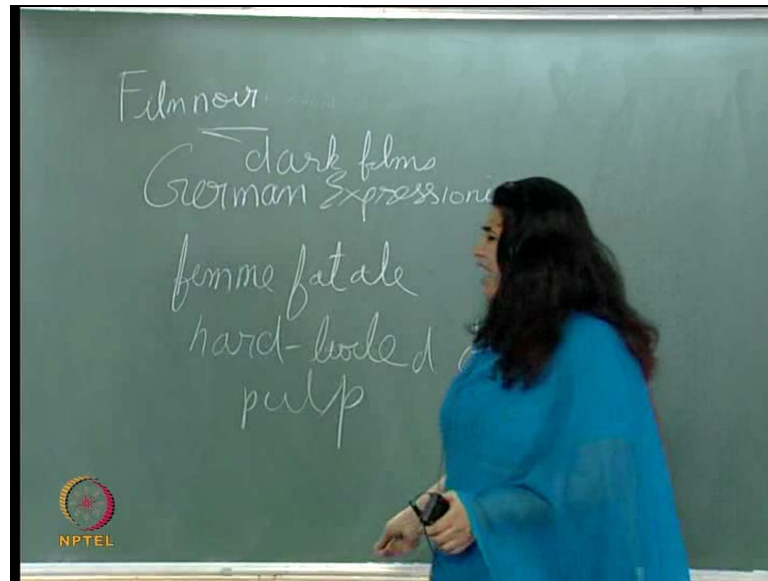 Film noir
dark films
German Expressioni
femme fatale
hard-boiled
pulp
NPTEL